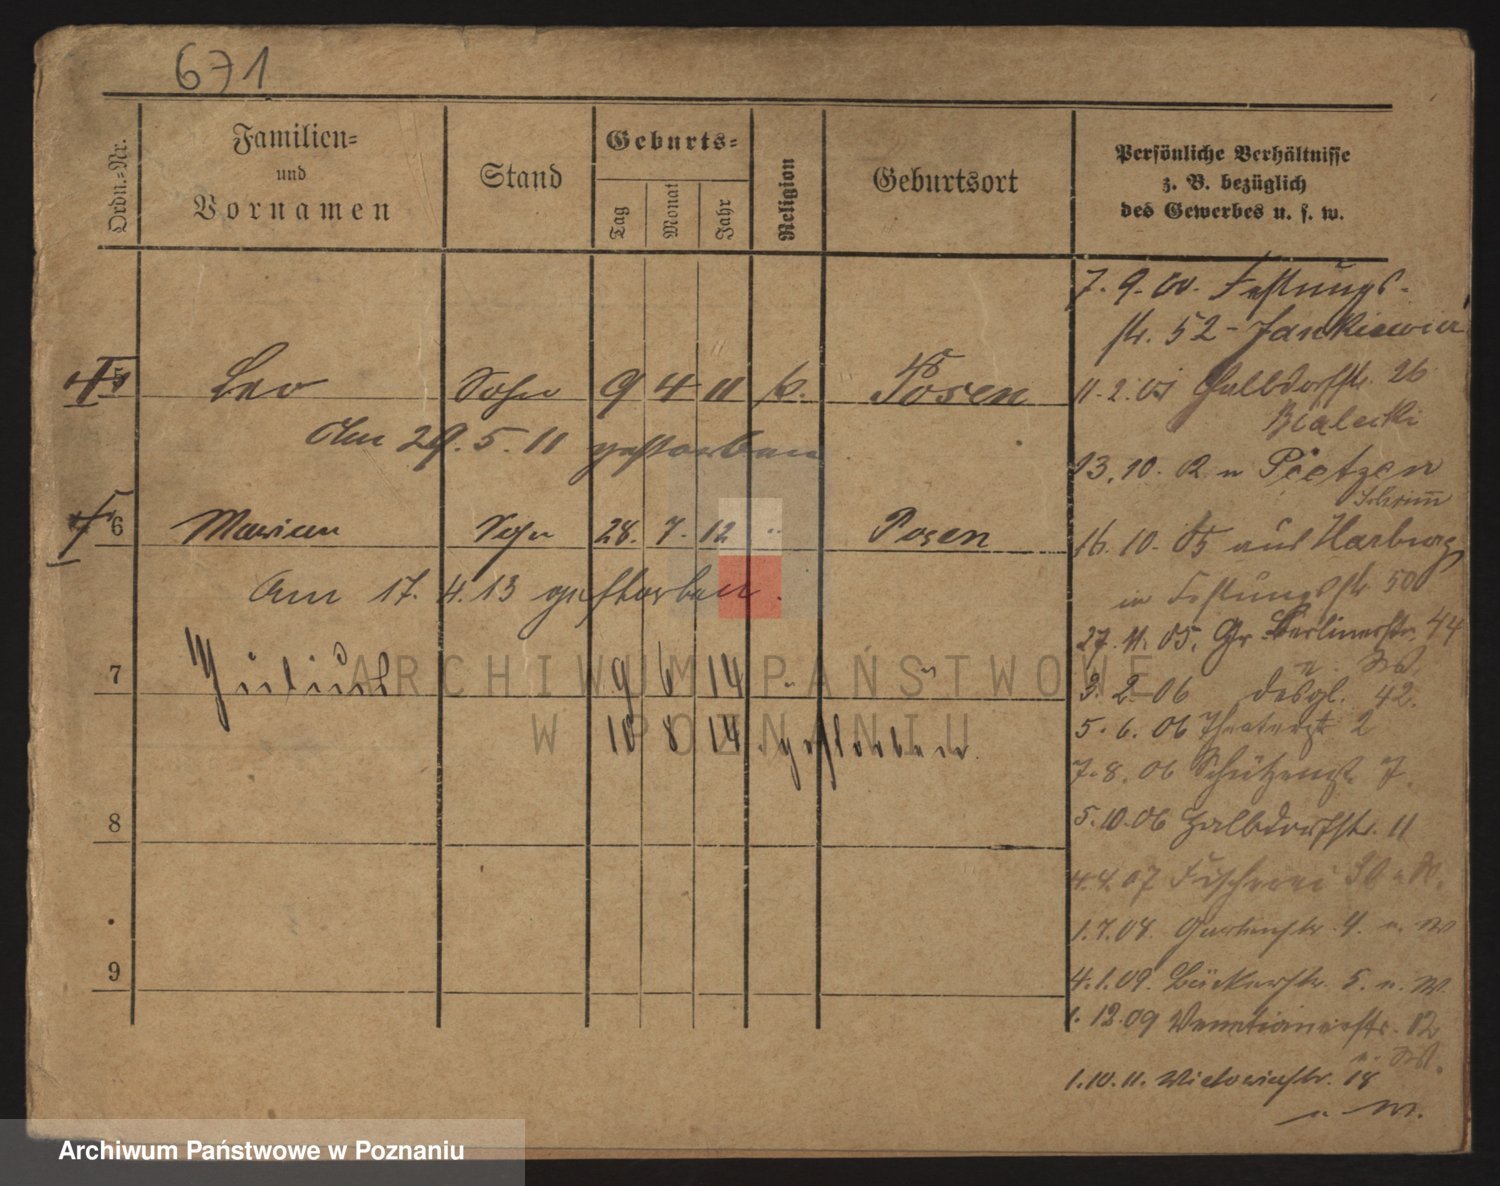 671
Ordn.-Nr.
Familien-
und
Vornamen
Stand
Geburts-
Tag
Monat
Jahr
Religion
Geburtsort
Persönliche Verhältnisse
z. B. bezüglich
des Gewerbes u. s. w.
5 Leo Sohn 9 4 11 k. Posen
Am 29. 5. 11 gestorben
6 Marian Sohn 28. 7. 12 " Posen
Am 17. 4. 13 gestorben.
7 9 6 14 " "
10 8 14 gestorben
8
9
7. 9. 00. Festungs-
str. 52 - Jankiewicz
11. 2. 05 Halbdorfstr. 26
Bialecki
13. 10. 02 n Pietzen
Schrimm
16. 10. 05 aus Harburg
in Festungsstr 50
27. 11. 05. Gr. Berlinerstr. 44
3. 2. 06 desgl. 42.
5. 6. 06 Theaterstr 2
7. 8. 06 Schützenstr. 7.
5. 10. 06 Halbdorfstr. 11
4. 4. 07 Fischerei
1. 7. 08. Gartenstr. 4. u. W
4. 1. 09. Bäckerstr. 5. u. W.
1. 12. 09 Venetianerstr. 12
u. W.
1. 10. 11. Victoriastr. 18
u W.
ARCHIWUM PAŃSTWOWE
W POZNANIU
Archiwum Państwowe w Poznaniu